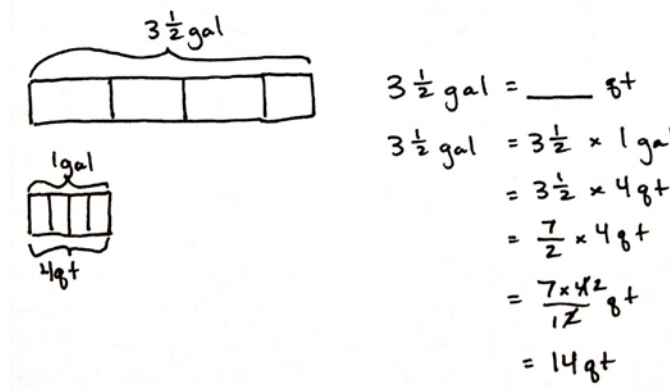 3 1/2 gal
1 gal
4qt
3 1/2 gal = ____ qt
3 1/2 gal = 3 1/2 × 1 gal
= 3 1/2 × 4qt
= 7/2 × 4qt
= 7×4 2/1 2 qt
= 14qt